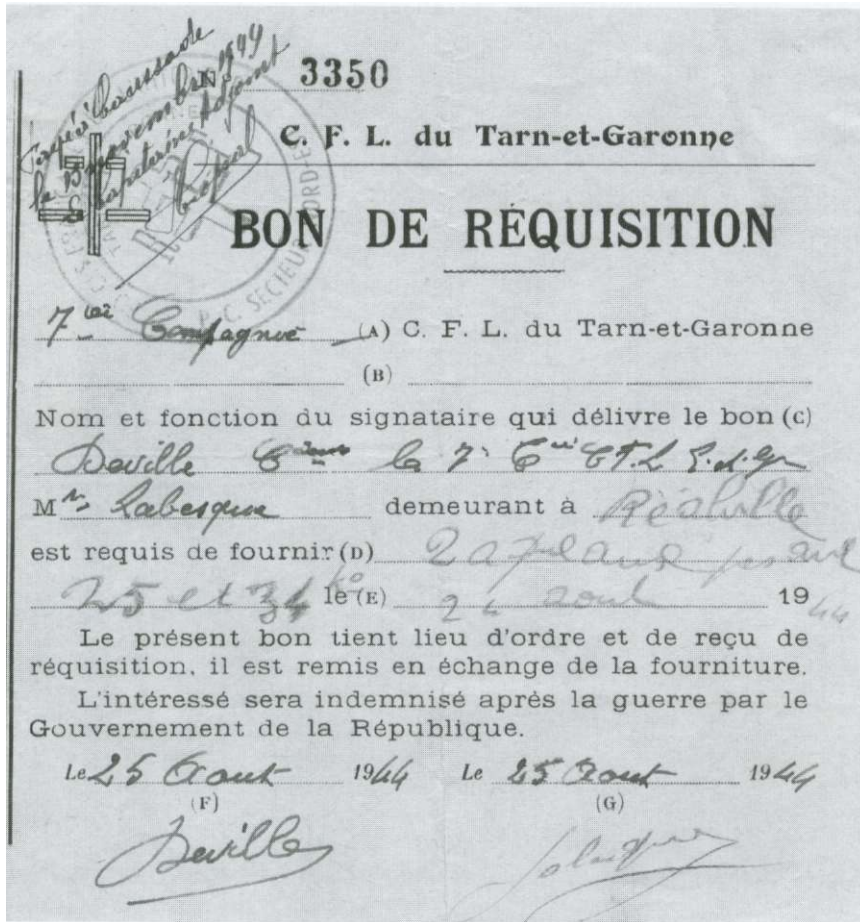 N 3350
Payé à Caussade
le novembre 1944
Capitaine Adjoint
C. F. L. du Tarn-et-Garonne
P. C. SECTEUR
BON DE RÉQUISITION
7 Compagnie (A) C. F. L. du Tarn-et-Garonne
(B)
Nom et fonction du signataire qui délivre le bon (C)
Deville la 7 C.F.L
M demeurant à Réalville
est requis de fournir (D) 2 agneaux
25 et 34 le (E) 24 aout 1944
Le présent bon tient lieu d'ordre et de reçu de
réquisition, il est remis en échange de la fourniture.
L'intéressé sera indemnisé après la guerre par le
Gouvernement de la République.
Le 25 Aout 1944 Le 25 Aout 1944
(F) (G)
Deville